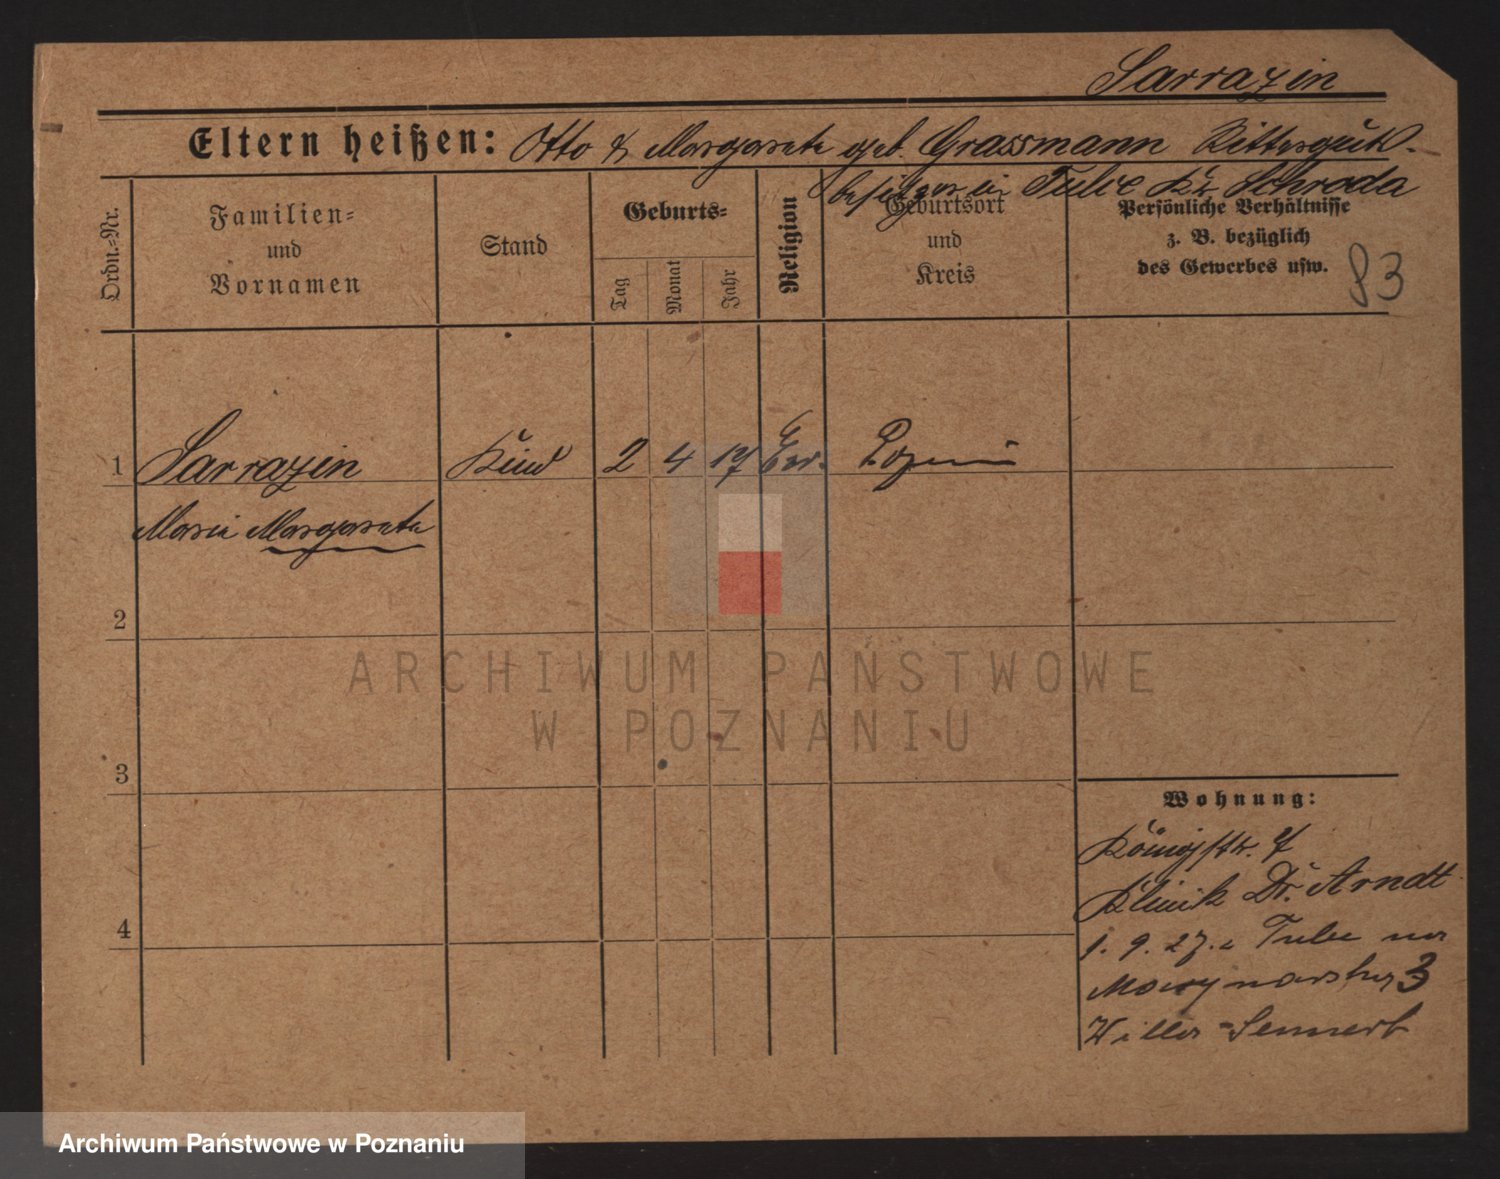 Sarrazin
Eltern heißen: Otto & Margarete geb. Grassmann Rittergut-
besitzer in Tulce Kr. Schroda
Ordn.=Nr.
Familien=
und
Vornamen
Stand
Geburts=
Tag
Monat
Jahr
Religion
Geburtsort
und
Kreis
Persönliche Verhältnisse
z. B. bezüglich
des Gewerbes usw.
83
1 Sarrazin Kind 2 4 17 Ev. Posen
Marie Margarete
2
3
4
Wohnung:
Königstr. 7
Klinik Dr. Arndt
1. 9. 27. Tulce
3
ARCHIWUM PAŃSTWOWE
W POZNANIU
Archiwum Państwowe w Poznaniu